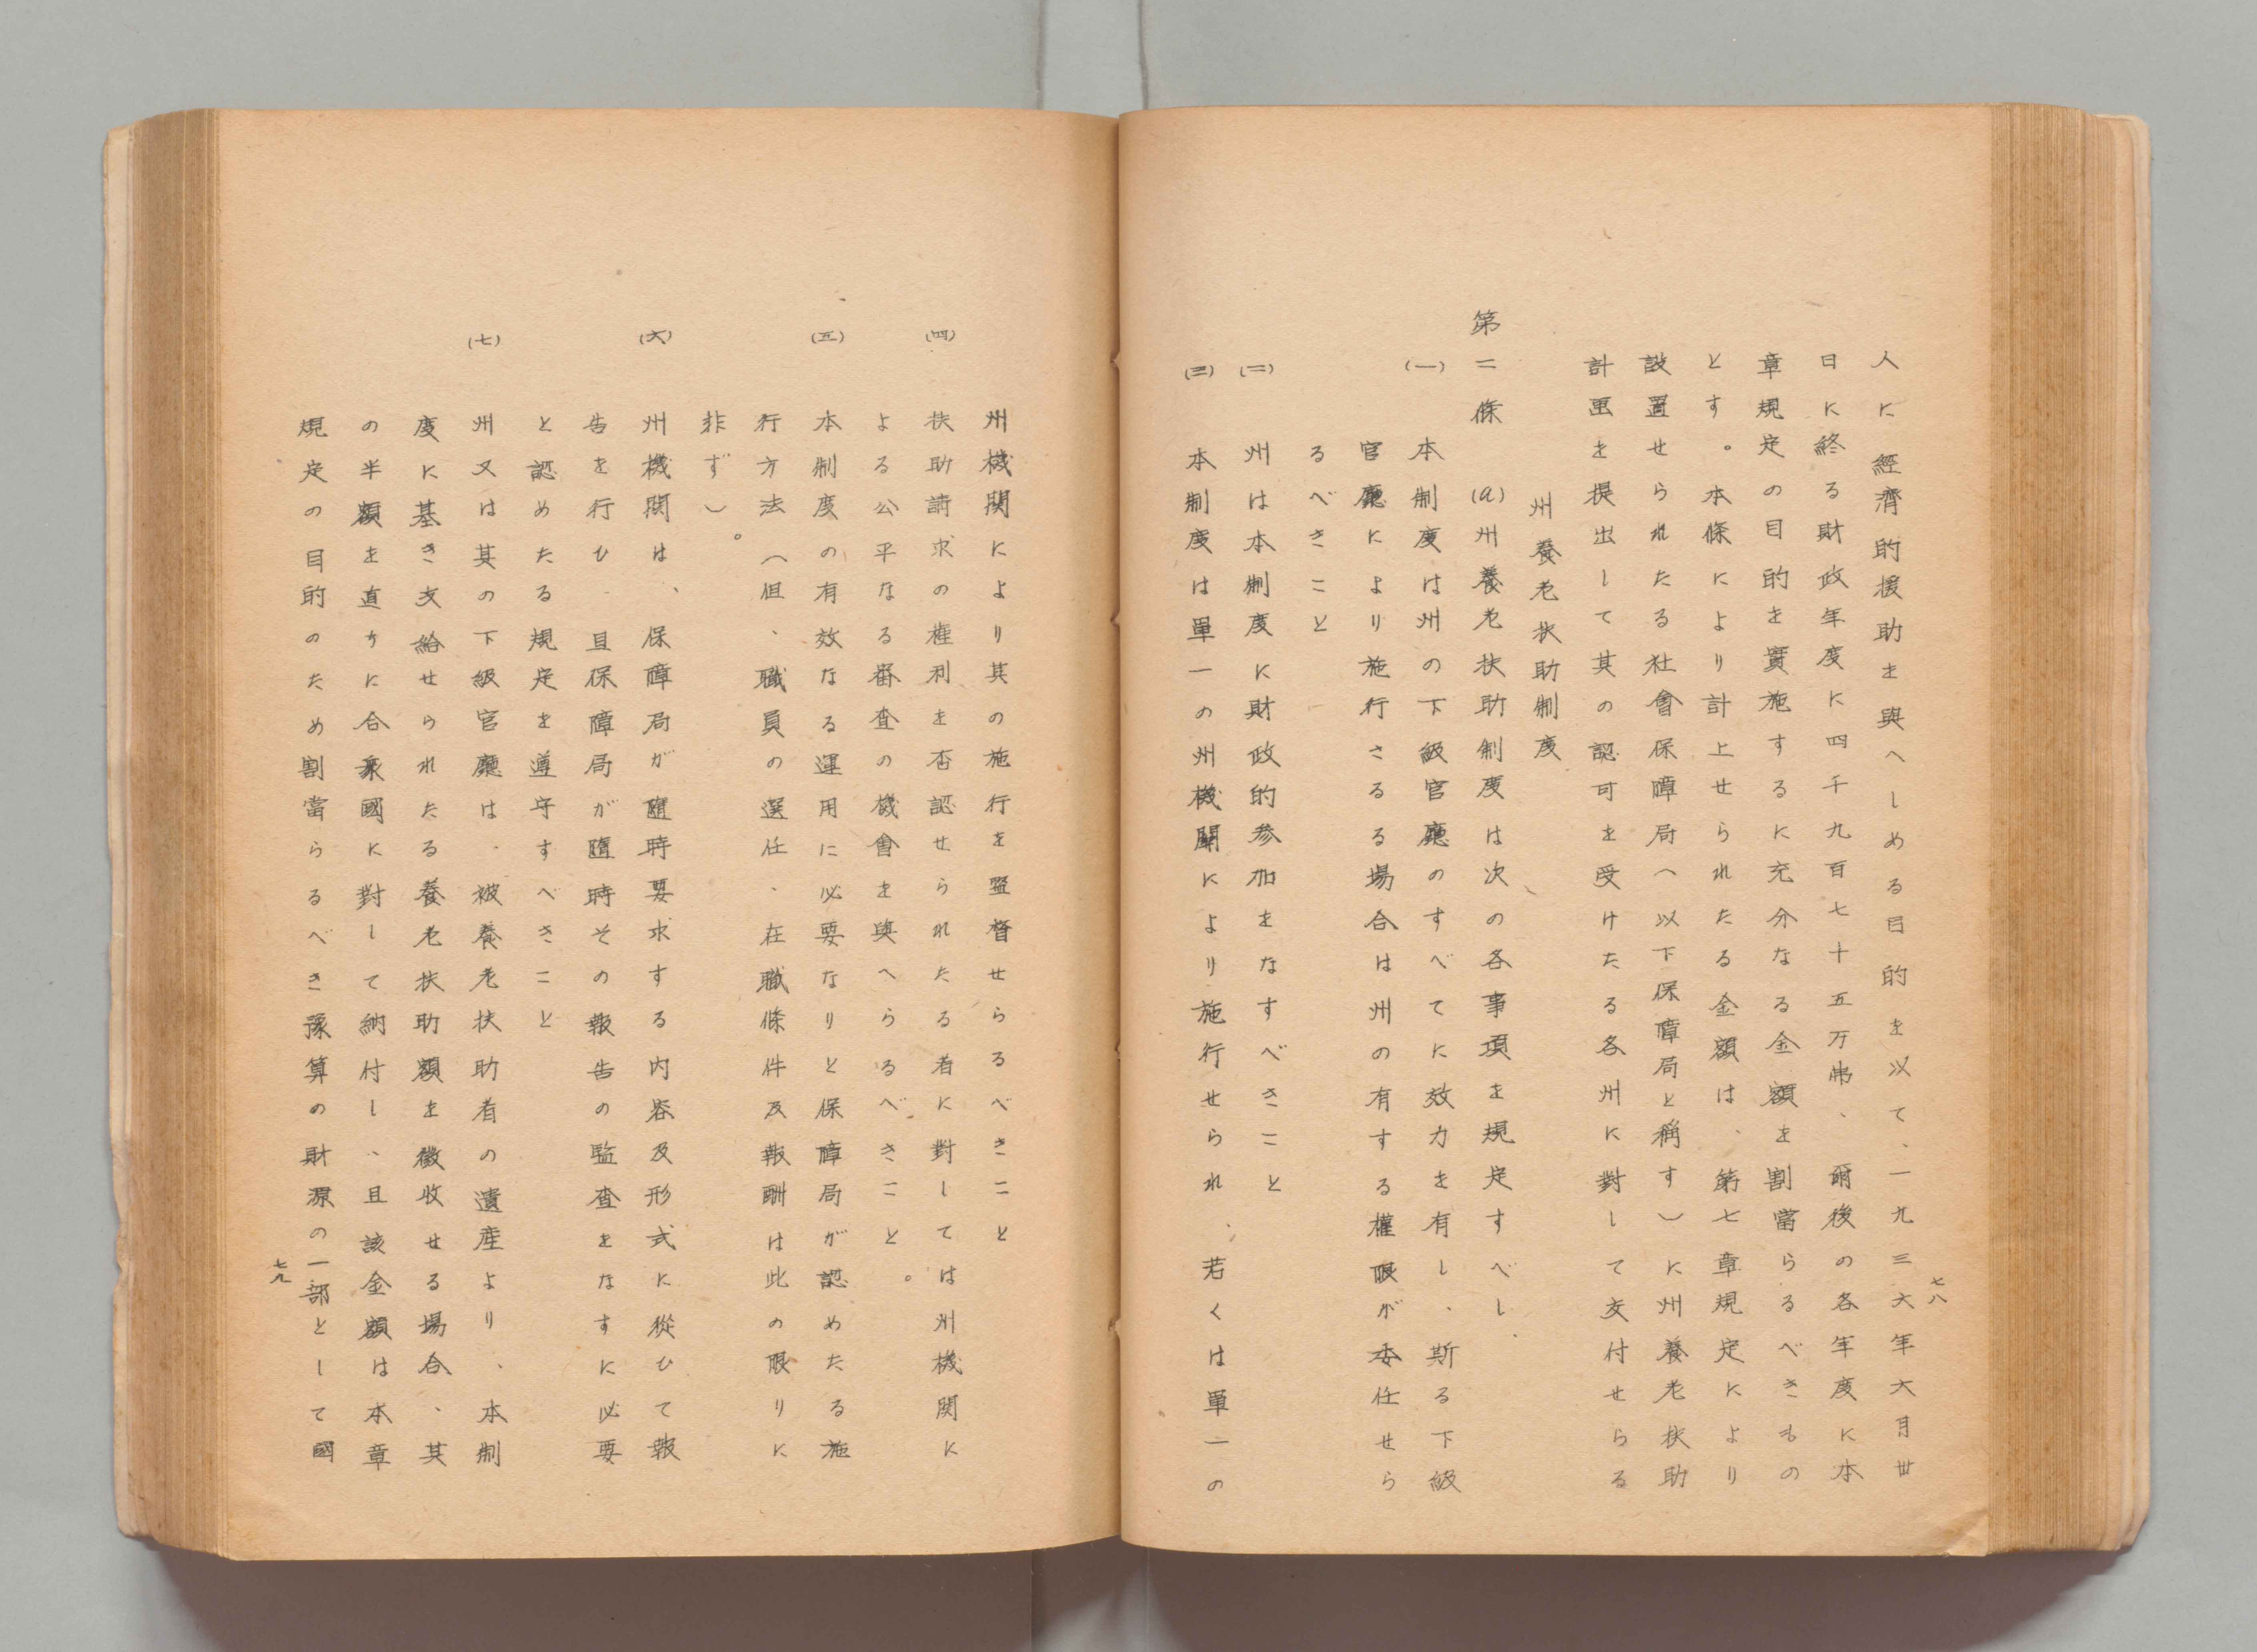 人に經濟的援助を與へしめる目的を以て、一九三六年六月卅
日に終る財政年度に四千九百七十五万弗、爾後の各年度に本
章規定の目的を實施するに充分なる金額を割當らるべきもの
とす。本條により計上せられたる金額は、第七章規定により
設置せられたる社會保障局（以下保障局と稱す）に州養老扶助
計画を提出して其の認可を受けたる各州に對して交付せらる
州養老扶助制度
第二條 (a)州養老扶助制度は次の各事項を規定すべし、
(一) 本制度は州の下級官廳のすべてに效力を有し、斯る下級
官廳により施行さるる場合は州の有する權限が委任せら
るべきこと
(二) 州は本制度に財政的参加をなすべきこと
(三) 本制度は單一の州機關により施行せられ、若くは單一の
七八
州機関により其の施行を監督せらるべきこと
(四) 扶助請求の權利を否認せられたる者に對しては州機関に
よる公平なる審査の機會を與へらるべきこと。
(五) 本制度の有效なる運用に必要なりと保障局が認めたる施
行方法（但、職員の選任、在職條件及報酬は此の限りに
非ず）。
(六) 州機関は、保障局が隨時要求する内容及形式に從ひて報
告を行ひ、且保障局が隨時その報告の監査をなすに必要
と認めたる規定を遵守すべきこと
(七) 州又は其の下級官廳は、被養老扶助者の遺産より、本制
度に基き支給せられたる養老扶助額を徴收せる場合、其
の半額を直ちに合衆國に對して納付し、且該金額は本章
規定の目的のため割當らるべき豫算の財源の一部として國
七九